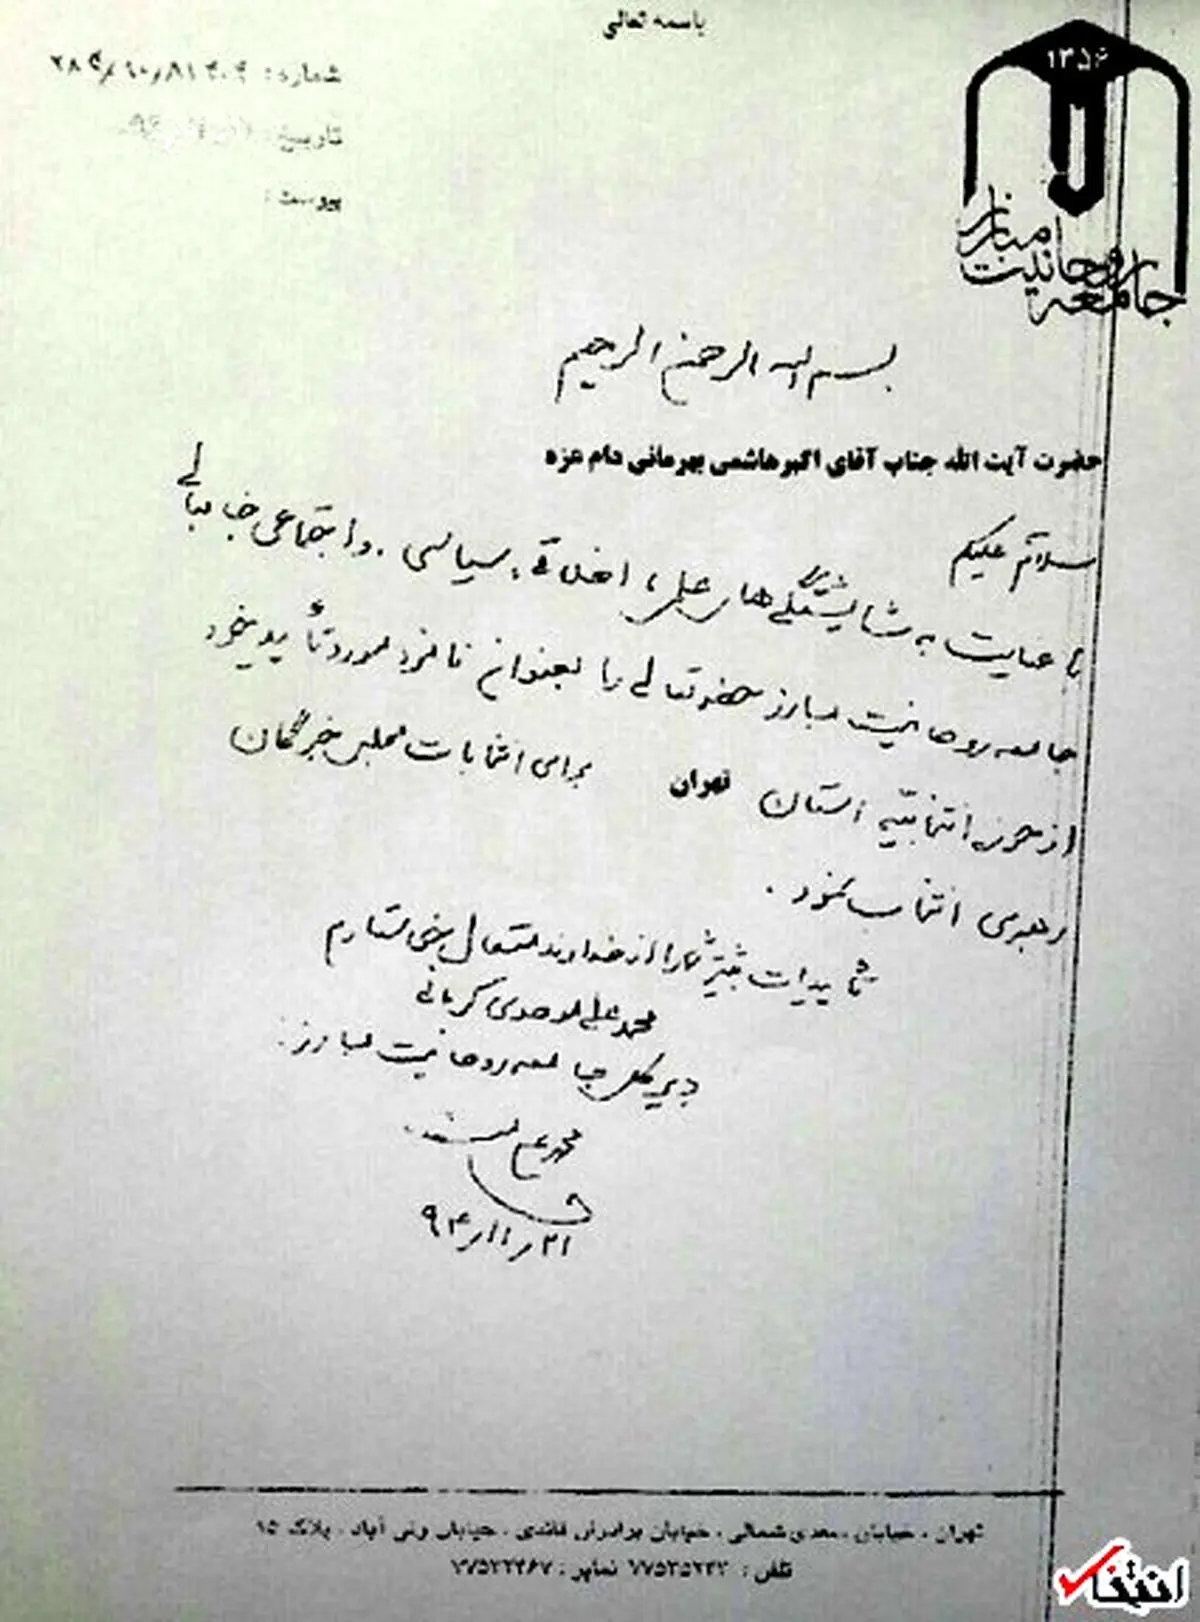 باسمه تعالی
۱۳۵۶
جامعه روحانیت مبارز
شماره:
تاریخ:
پیوست:
بسم الله الرحمن الرحیم
حضرت آیت الله جناب آقای اکبر هاشمی بهرمانی دام عزه
سلام علیکم
با عنایت به شایستگی های علمی، اخلاقی، سیاسی، و اجتماعی جنابعالی
جامعه روحانیت مبارز حضرتعالی را بعنوان نامزد مورد تأیید خود
از حوزه انتخابیه استان تهران برای انتخابات مجلس خبرگان
رهبری انتخاب نمود.
تأییدات بیشتر شما را از خداوند متعال مسئلت دارم
محمد علی موحدی کرمانی
دبیر کل جامعه روحانیت مبارز
۹۴/۱۱/۲۱
تهران، خیابان سعدی شمالی، خیابان برادران قائدی، خیابان ولی آباد، پلاک ۱۵
تلفن: ۷۷۵۳۵۲۳۳ نمابر:
انتخاب